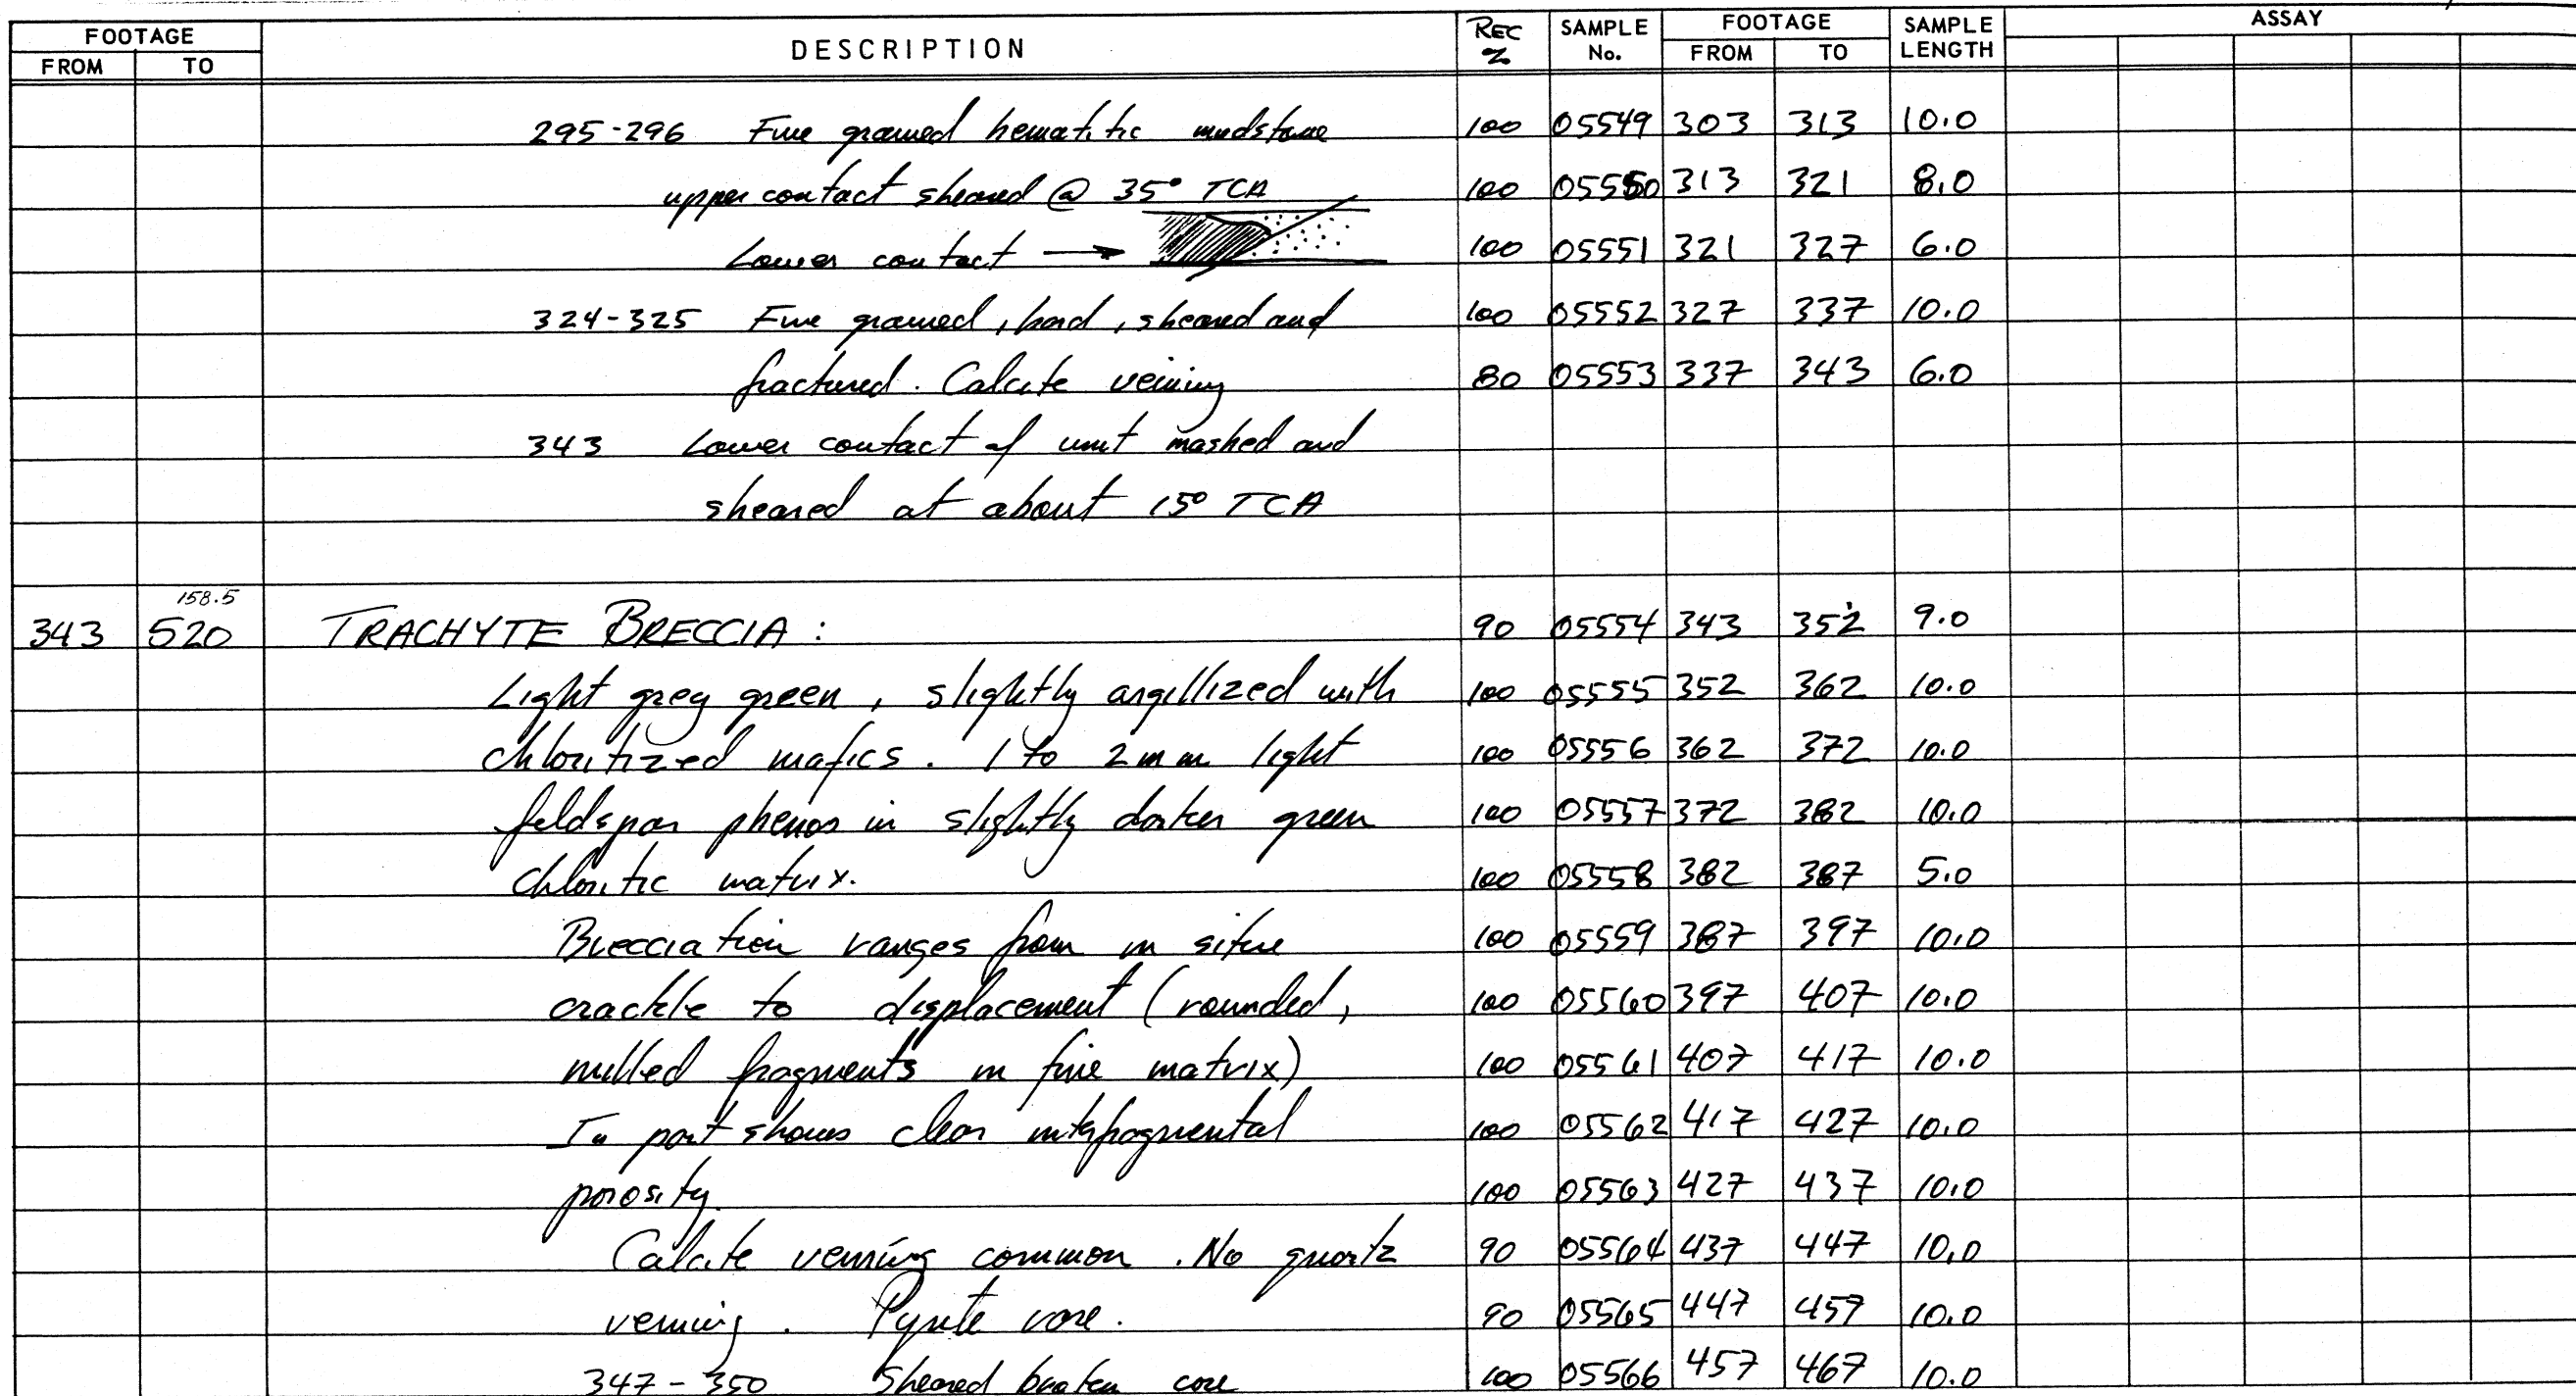 FOOTAGE DESCRIPTION REC % SAMPLE No. FOOTAGE SAMPLE LENGTH ASSAY
FROM TO FROM TO
295-296 Fine grained hematitic mudstone 100 05549 303 313 10.0
upper contact sheared @ 35° TCA 100 05550 313 321 8.0
Lower contact → 100 05551 321 327 6.0
324-325 Fine grained, hard, sheared and 100 05552 327 337 10.0
fractured. Calcite veining 80 05553 337 343 6.0
343 Lower contact of unit mashed and
sheared at about 15° TCA
158.5
343 520 TRACHYTE BRECCIA: 90 05554 343 352 9.0
Light grey green, slightly argillized with 100 05555 352 362 10.0
chloritized mafics. 1 to 2mm light 100 05556 362 372 10.0
feldspar phenos in slightly darker green 100 05557 372 382 10.0
chloritic matrix. 100 05558 382 387 5.0
Brecciation ranges from in situ 100 05559 387 397 10.0
crackle to displacement (rounded, 100 05560 397 407 10.0
milled fragments in fine matrix) 100 05561 407 417 10.0
In part shows clear interfragmental 100 05562 417 427 10.0
porosity. 100 05563 427 437 10.0
Calcite veining common. No quartz 90 05564 437 447 10.0
veining. Pyrite rare. 90 05565 447 457 10.0
347-350 Sheared broken core 100 05566 457 467 10.0